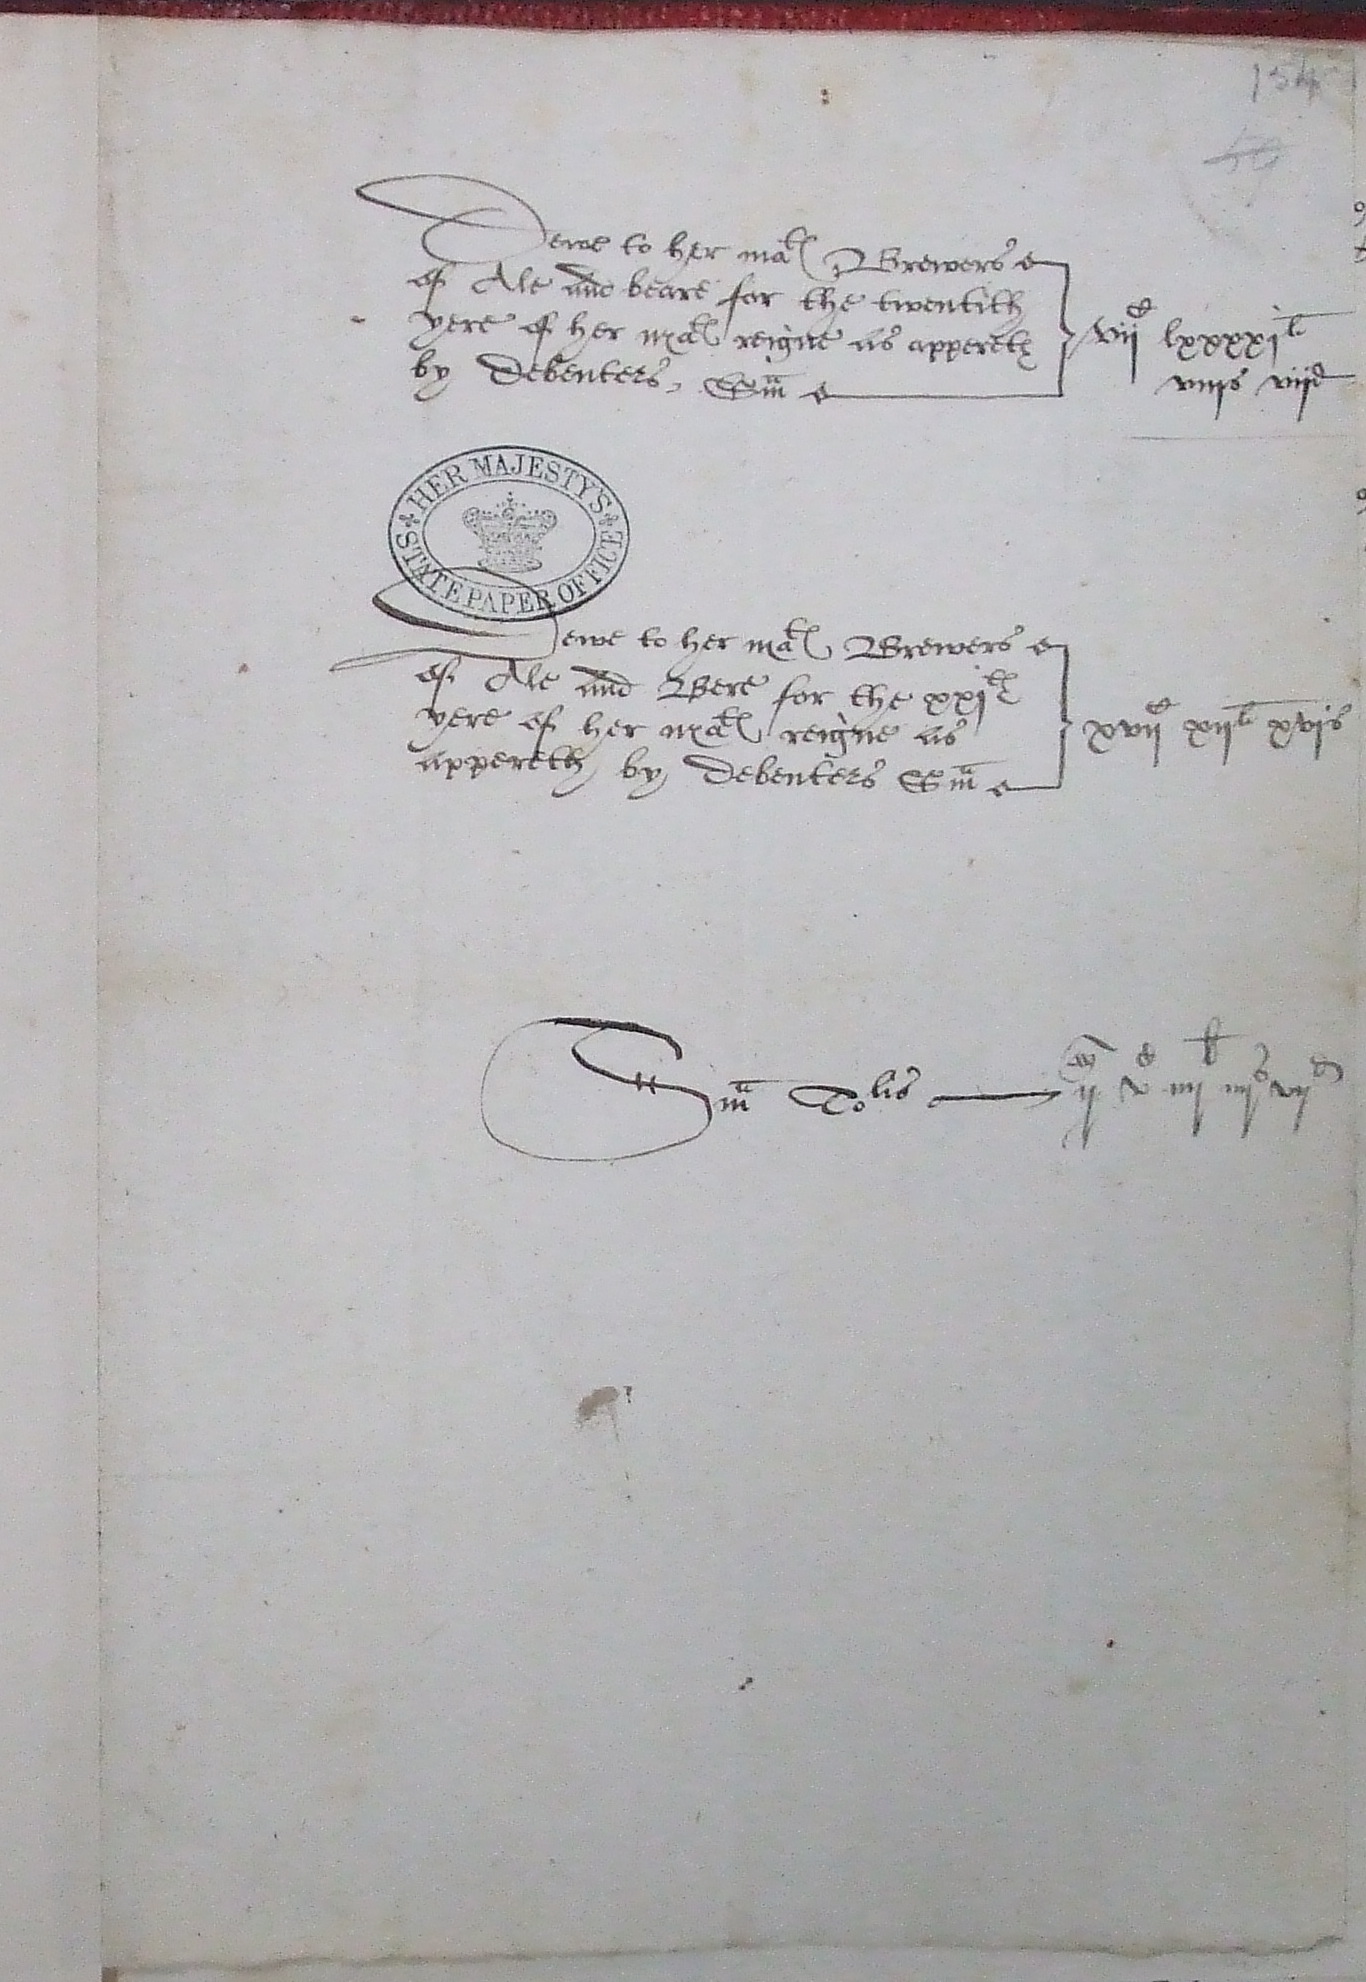 154
50
Dewe to her matꝭ Brewers
of Ale and beare for the twentith
yere of her matꝭ reigne as appereth
by Debenters. Sma
viiᶜ lxxxxiˡ
viijs viijᵈ
HER MAJESTY'S STATE PAPER OFFICE
Dewe to her matꝭ Brewers
of Ale and Bere for the xxiᵗʰ
yere of her matꝭ reigne as
appereth by Debenters Sma
xviiᶜ xiiˡ xvis
Sma Tolis
ijᵐ vᶜ iiijˡ iiijˢ viijᵈ